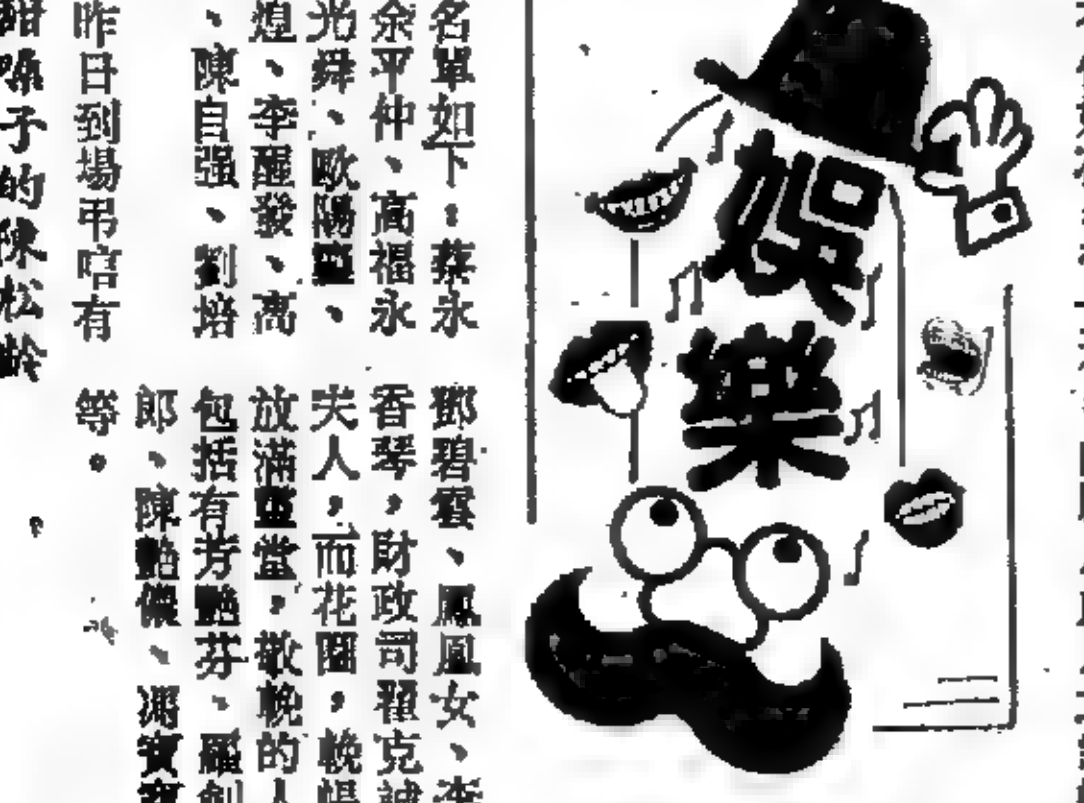 娛樂
名單如下：蔡永
余平仲、高福永
光舜、歐陽
煌、李醒發、高
、陳自强、劉培
昨日到場弔唁有
甜嗓子的陳松齡
鄧碧雲、鳳凰女、李
香琴，財政司翟克誠
夫人，而花圈，輓幛
放滿靈堂，敬輓的人
包括有芳艷芬、羅劍
郎、陳艷儂、馮寶寶
等。